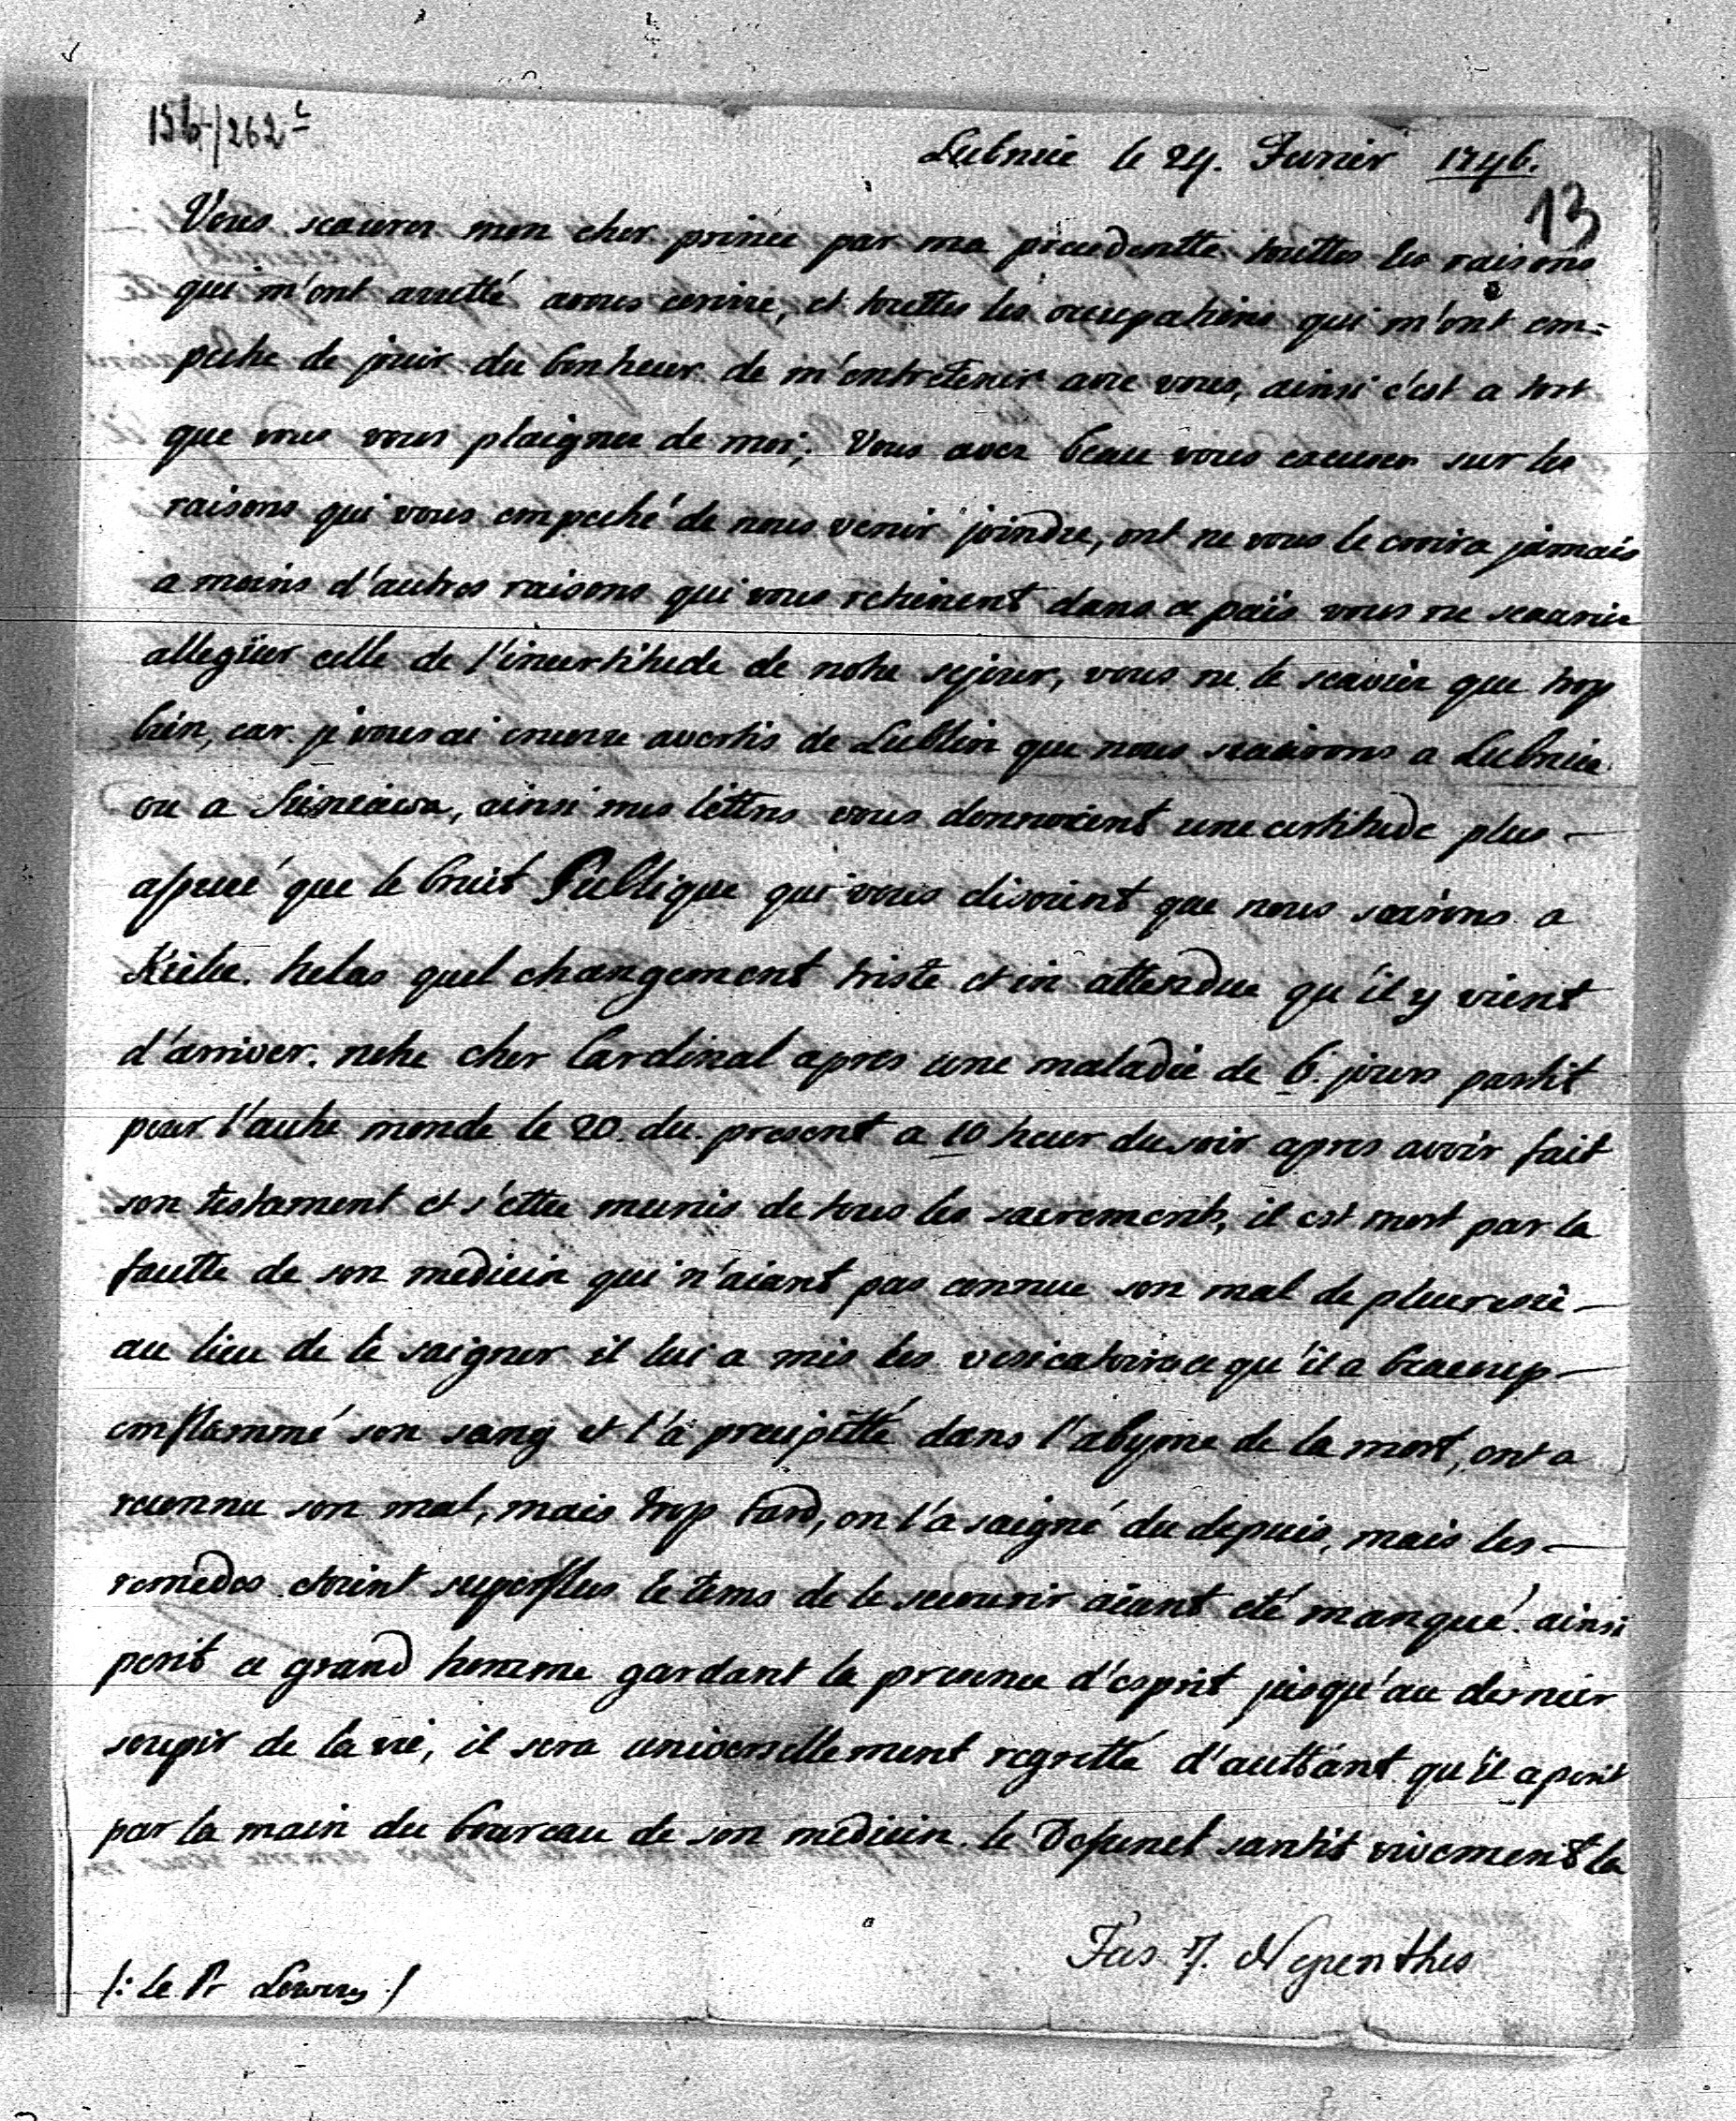 262
Lubnice le 24. Fevrier 1746.
13
Vous scaurez mon cher prince par ma precedentte touttes les raisons
qui m'ont aretté avous ecrire, et touttes les occupations qui m'ont em=
peche de jouir du bonheur de m'entretenir avec vous, ainsi c'est a tort
que vous vous plaignez de moi; Vous avez beau vous excuser sur les
raisons qui vous empeché de nous venir joindre, ont ne vous le croira jamais
a moins d'autres raisons qui vous retiennent dans ce païs vous ne scauriez
allegüer celle de l'incertitude de notre sejour, vous ne le scaviez que trop
bien, car je vous ai encore avertis de Lublin que nous serions a Lubnice
ou a Siniawa, ainsi mes lettres vous donnoient une certitude plus
assuré que le bruit Publique qui vous disoient que nous serions a
Kielce. helas quel changement triste et in attendue qu'il y vient
d'arriver. notre cher Cardinal apres une maladie de 6. jours partit
pour l'autre monde le 20. du present a 10 heur du soir apres avoir fait
son testament et s'ettre munis de tous les sacrements, il est mort par la
fautte de son medicin qui n'aiant pas connue son mal de pleuresie
au lieu de le saigner il lui a mis les vesicatoires ce qu'il a beaucoup
emflammé son sang et l'a precipitté dans l'abyme de la mort, ont a
reconnu son mal, mais trop tard, on l'a saigné du depuis, mais les
remedes etoint superflus le tems de le secourir aiant eté manqué. ainsi
perit ce grand homme gardant la presence d'esprit jusqu'au dernier
soupir de la vie, il sera universellement regretté d'auttant qu'il a perit
par la main du boureau de son medicin. le Defunct santit vivement la
/: le Pr /